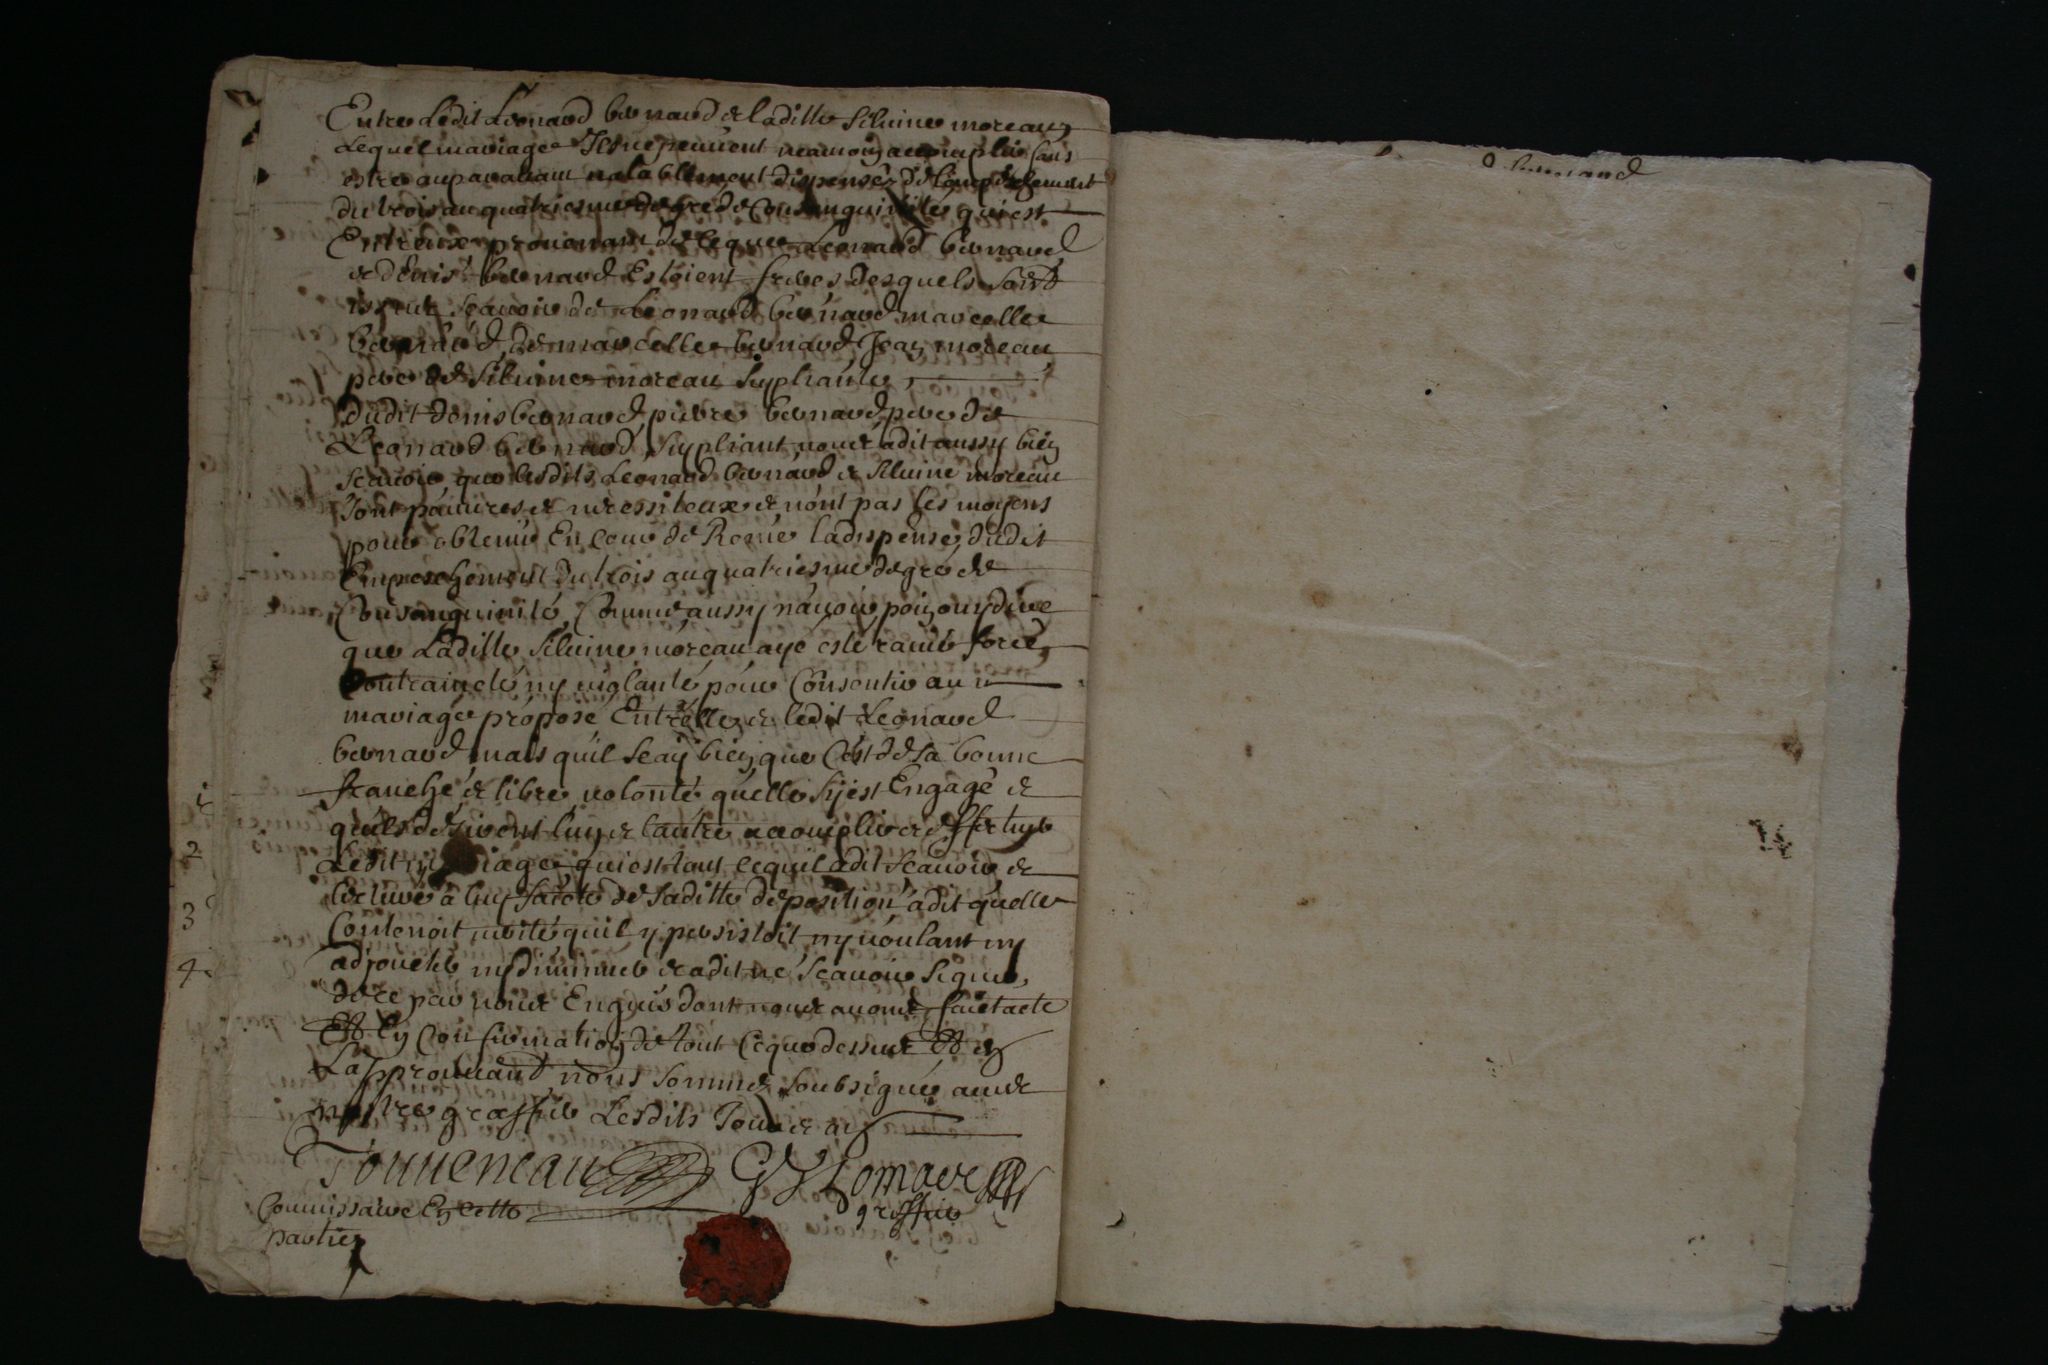 Entre Ledit Leonard bernard et laditte Silvine moreau,
Lequel mariage Ils ne peuuent neamoins accomplir sans
estre auparauant valablement dispensez de l'empeschement
du trois au quatriesme degré de Consanguinité, qui est
Entr'eux prouenant de ce que Leonard bernard
et denis bernard Estoient freres desquels sont
issus sçauoir de Leonard bernard marcelle
bernard, de marcelle bernard Jean moreau
pere de Silvine moreau supliante,
dudit denis bernard, pierre bernard pere de
Leonard bernard, supliant nous a dit aussy bien
sçauoir que lesdits Leonard bernard et Silvine moreau
sont pauures et necessiteux et n'ont pas les moyens
pour obtenir En Cour de Rome la dispense dudit
Empeschement du trois au quatriesme degré de
Consanguinité, Comme aussy n'auoir point ouy dire
que Laditte Silvine moreau aye esté rauie forcée,
Contrainte ny violanté pour Consentir au
mariage proposé Entr'elle et ledit Leonard
bernard mais qu'il sçay bien que C'est de sa bonne
franche et libre volonté quelle s'y est Engagé et
quils desirent l'un et l'autre accomplir et effectuer
Ledit mariage, qui est tout ce quil a dit sçauoir et
lecture a luy faicte de saditte deposition a dit quelle
Contenoit verité qu'il y persistoit n'y voulant ny
adjouter ny diminuer et a dit ne sçauoir signer,
de ce par nous Enquis dont nous auons faict acte
Et En Confirmation de tout Ce que dessus Et en
L'approuuant nous sommes soubsignés auec
nostre greffier Lesdits Jour et an
Tourneneau
greffier
Commissaire En cette
partie
2
3
4